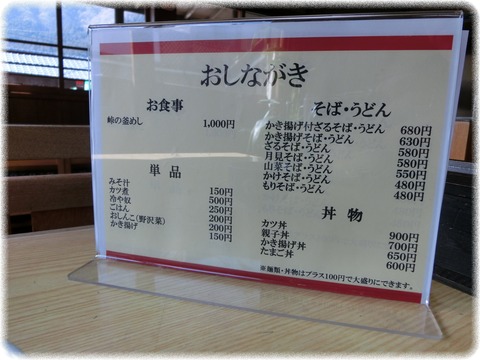 おしながき
お食事
峠の釜めし 1,000円
単品
みそ汁 150円
カツ煮 500円
冷や奴 250円
ごはん 200円
おしんこ(野沢菜) 200円
かき揚げ 150円
そば・うどん
かき揚げ付ざるそば・うどん 680円
かき揚げそば・うどん 630円
ざるそば・うどん 580円
月見そば・うどん 580円
山菜そば・うどん 550円
かけそば・うどん 480円
もりそば・うどん 480円
丼物
カツ丼 900円
親子丼 700円
かき揚げ丼 650円
たまご丼 600円
※麺類・丼物はプラス100円で大盛りにできます。